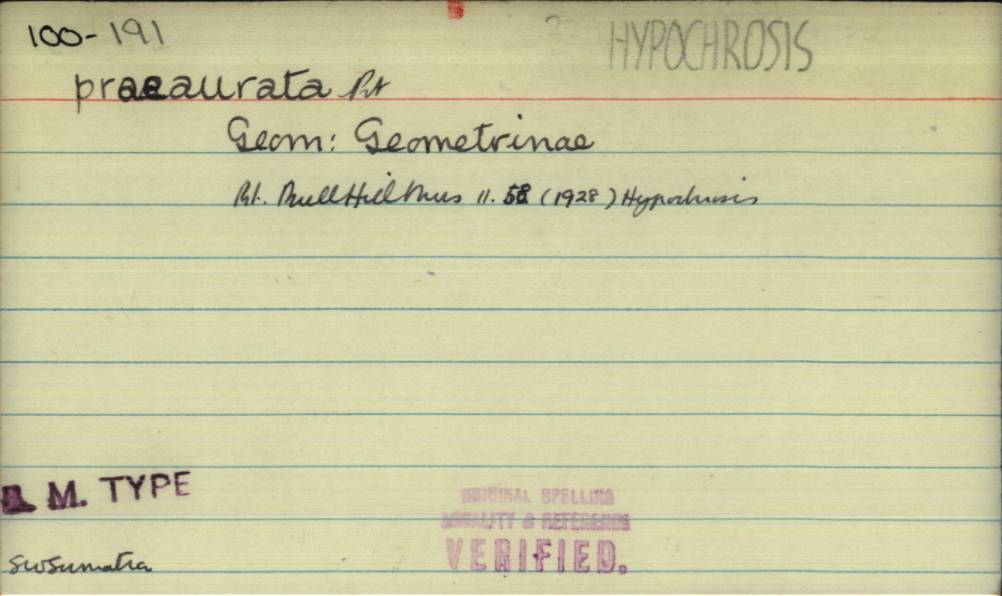 100-191
HYPOCHROSIS
praeaurata Pt
Geom: Geometrinae
Pt. Bull Hill Mus 11. 58 (1928) Hypochrosis
M. TYPE
ORIGINAL SPELLING
LOCALITY & REFERENCE
VERIFIED.
SW Sumatra